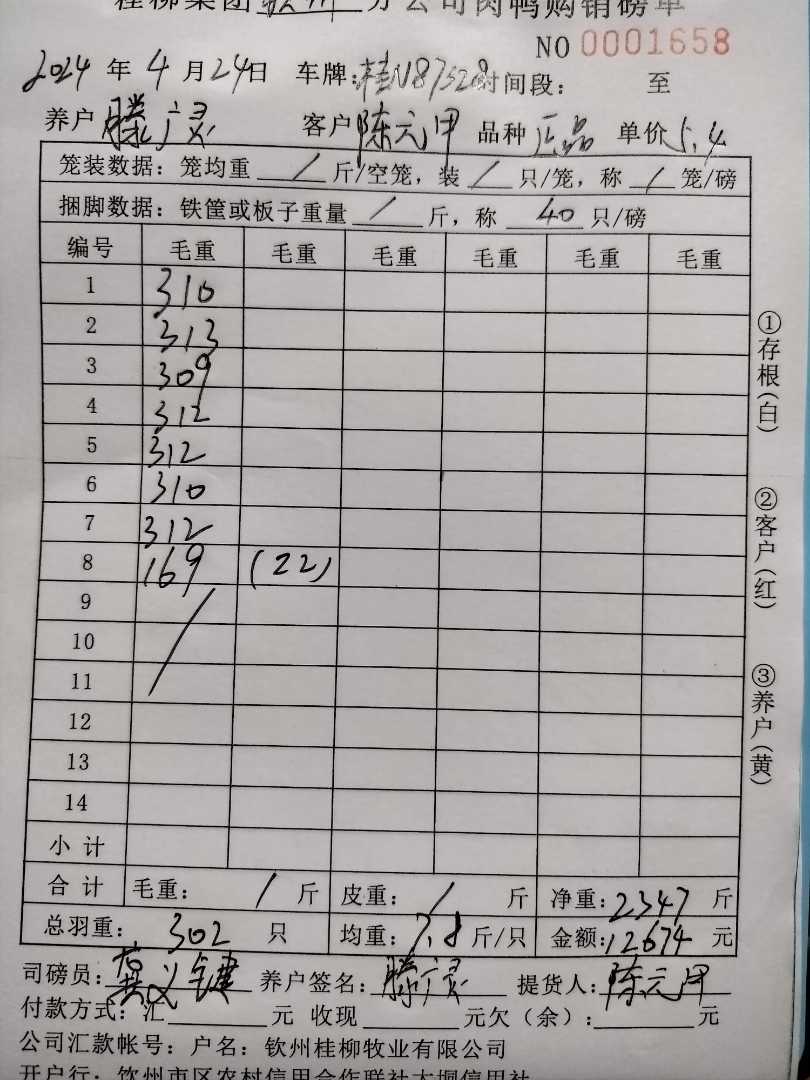 桂柳集团钦州分公司肉鸭购销磅单
NO 0001658
2024 年 4 月 24日 车牌:桂N87528 时间段: 至
养户 滕广灵 客户 陈元甲 品种 正品 单价 5.4
笼装数据: 笼均重 / 斤/空笼, 装 / 只/笼, 称 / 笼/磅
捆脚数据: 铁筐或板子重量 / 斤, 称 40 只/磅
编号 毛重 毛重 毛重 毛重 毛重 毛重
1 310
2 313
3 309
4 312
5 312
6 310
7 312
8 169 (22)
9 /
10
11
12
13
14
小计
合计 毛重: / 斤 皮重: / 斤 净重: 2347 斤
总羽重: 302 只 均重: 7.8 斤/只 金额: 12674 元
司磅员: 养户签名: 滕广灵 提货人: 陈元甲
付款方式: 汇 元 收现 元欠(余): 元
公司汇款帐号: 户名: 钦州桂柳牧业有限公司
开户行: 钦州市区农村信用合作联社大垌信用社
①存根(白)
②客户(红)
③养户(黄)